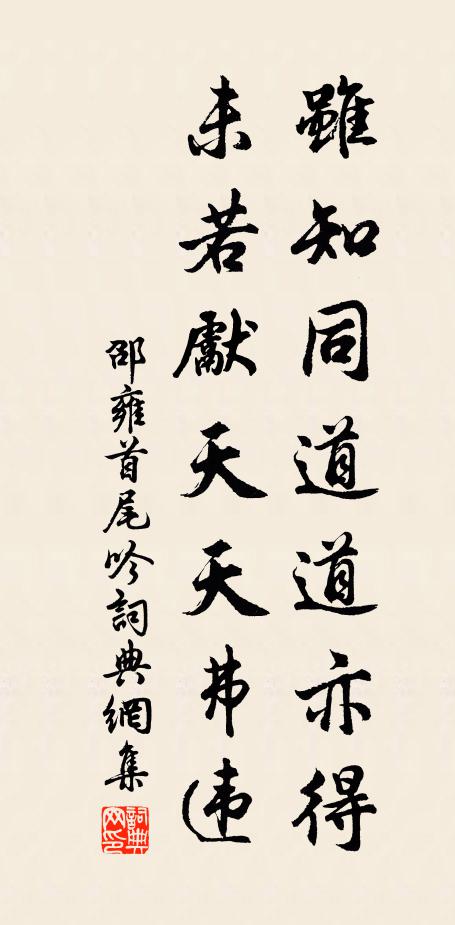 雖知同道道亦得
未若獻天天弗违
邵雍首尾吟詞典網集
詞典
网印